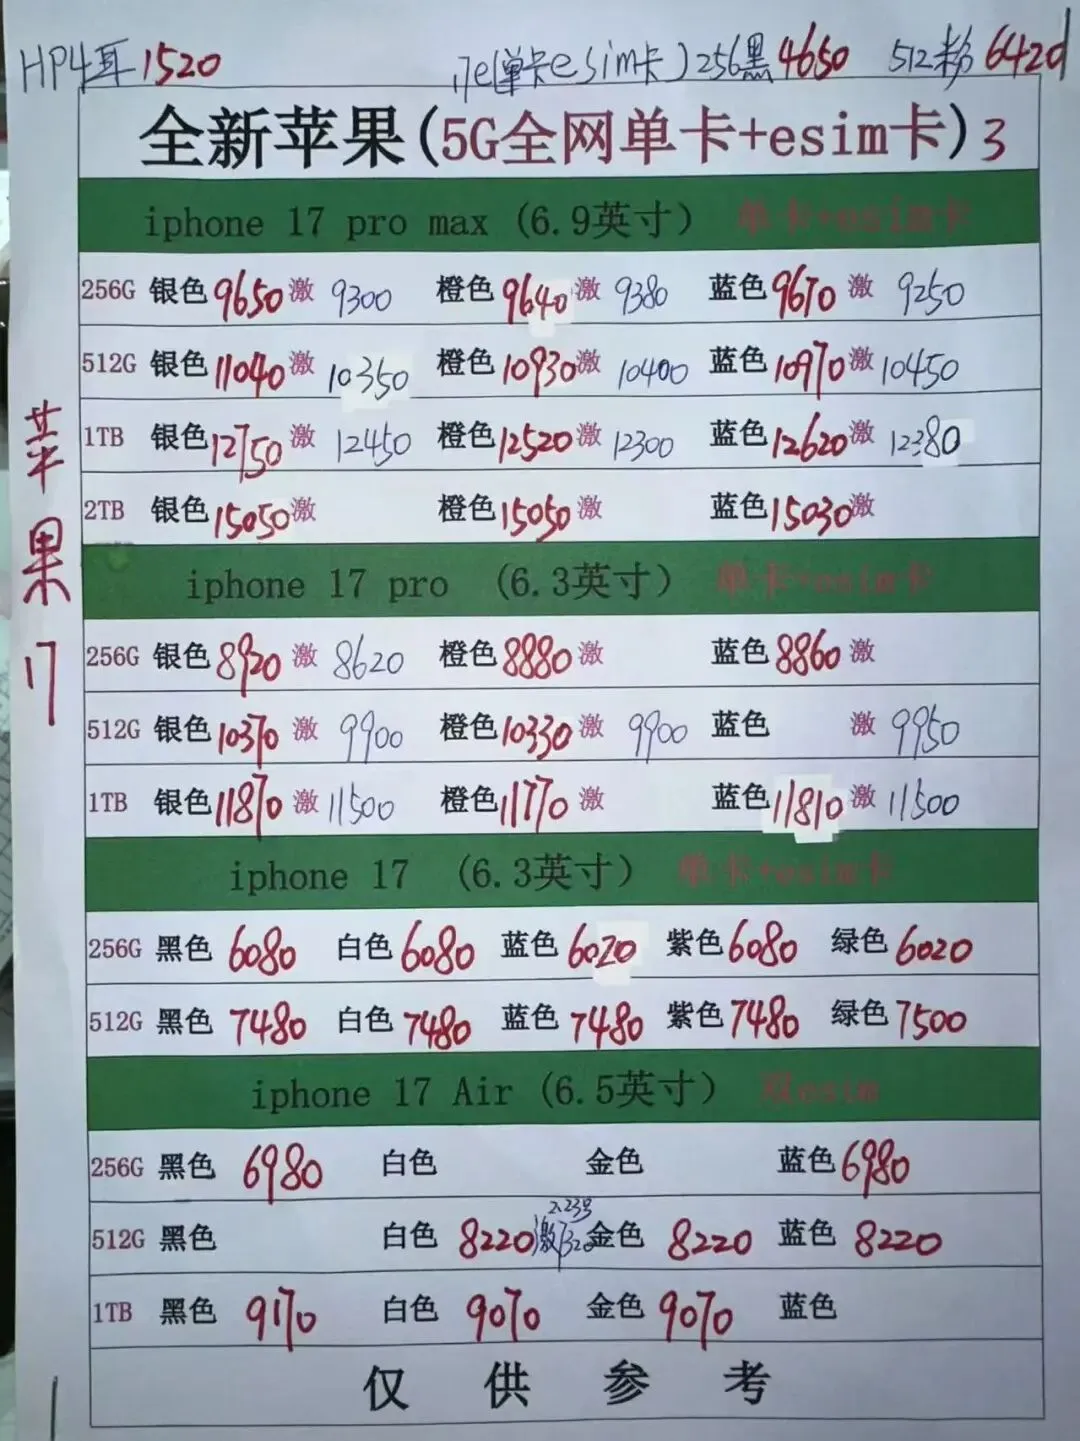 HP4耳1520 17e(单卡esim卡)256黑4650 512粉6420
全新苹果(5G全网单卡+esim卡)3
iphone 17 pro max (6.9英寸) 单卡+esim卡
256G 银色9650激 9300 橙色9640激 9380 蓝色9670激 9250
512G 银色11040激 10350 橙色10930激 10400 蓝色10970激 10450
1TB 银色12750激 12450 橙色12520激 12300 蓝色12620激 12380
2TB 银色15050激 橙色15050激 蓝色15030激
苹果17
iphone 17 pro (6.3英寸) 单卡+esim卡
256G 银色8920激 8620 橙色8880激 蓝色8860激
512G 银色10370激 9900 橙色10330激 9900 蓝色 激 9950
1TB 银色11870激 11500 橙色11770激 蓝色11810激 11500
iphone 17 (6.3英寸) 单卡+esim卡
256G 黑色 6080 白色 6080 蓝色 6020 紫色 6080 绿色 6020
512G 黑色 7480 白色 7480 蓝色 7480 紫色 7480 绿色 7500
iphone 17 Air (6.5英寸) 双esim
256G 黑色 6980 白色 金色 蓝色 6980
512G 黑色 白色 8220 激 金色 8220 蓝色 8220
1TB 黑色 9170 白色 9070 金色 9070 蓝色
仅供参考